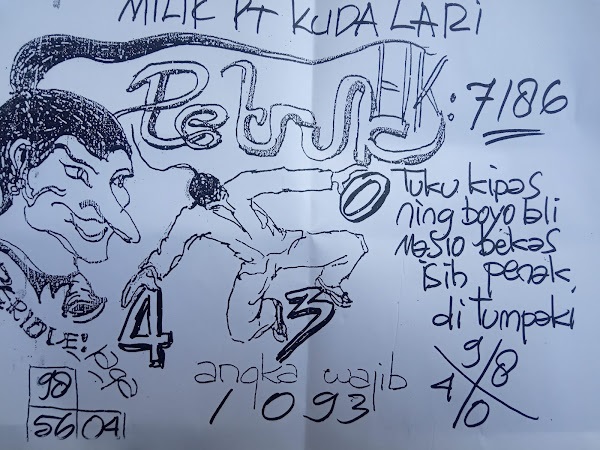 MILIK PT KUDA LARI
Petruk
EIK: 7/86
Tuku kipas
ning boyo bli
Nasio bekas
isih penak
di Tumpaki
0
4 3
angka wajib
1093
98
56 04
9/8
4/0